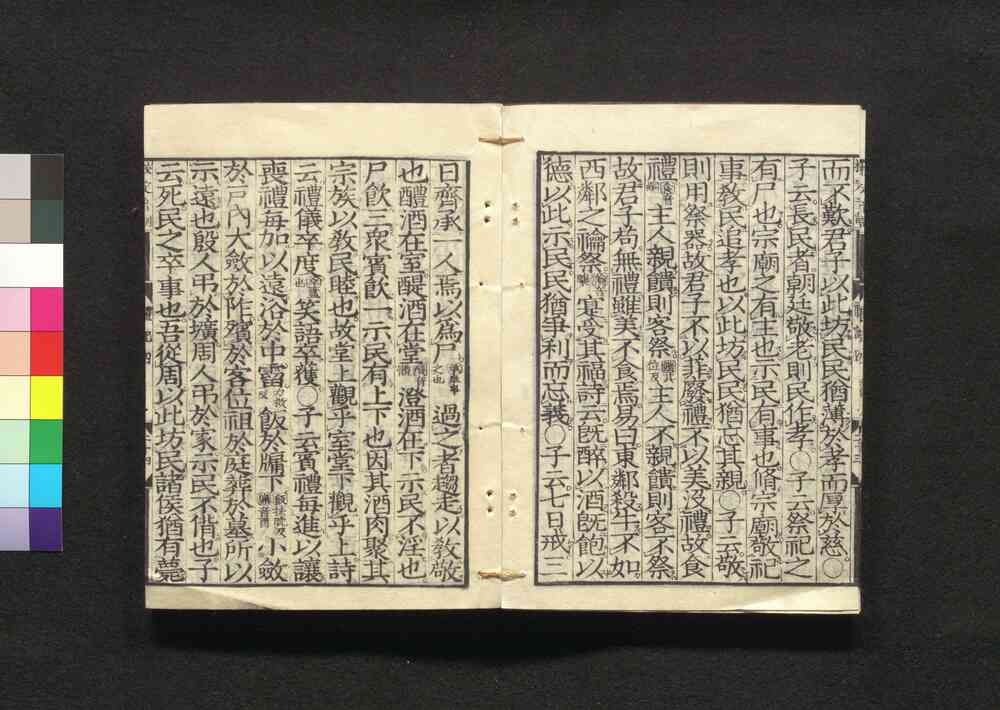 而不歎君子以此坊民民猶薄於孝而厚於慈○
子云長民者朝廷敬老則民作孝○子云祭祀之
有尸也宗廟之有主也示民有事也脩宗廟敬祀
事敎民追孝也以此坊民民猶忘其親○子云敬
則用祭器故君子不以菲廢禮不以美没禮故食
禮主人親饋則客祭主人不親饋則客不祭
故君子苟無禮雖美不食焉易曰東鄰殺牛不如
西鄰之禴祭寔受其福詩云旣醉以酒旣飽以
德以此示民民猶爭利而忘義○子云七日戒三
日齊承一人焉以爲尸過之者趨走以敎敬
也醴酒在室醍酒在堂澄酒在下示民不淫也
尸飮三衆賓飮一示民有上下也因其酒肉聚其
宗族以敎民睦也故堂上觀乎室堂下觀乎上詩
云禮儀卒度笑語卒獲○子云賓禮每進以讓
喪禮每加以遠浴於中霤飯於牖下小斂
於戸內大斂於阼殯於客位祖於庭葬於墓所以
示遠也殷人弔於壙周人弔於家示民不偝也子
云死民之卒事也吾從周以此坊民諸侯猶有薨